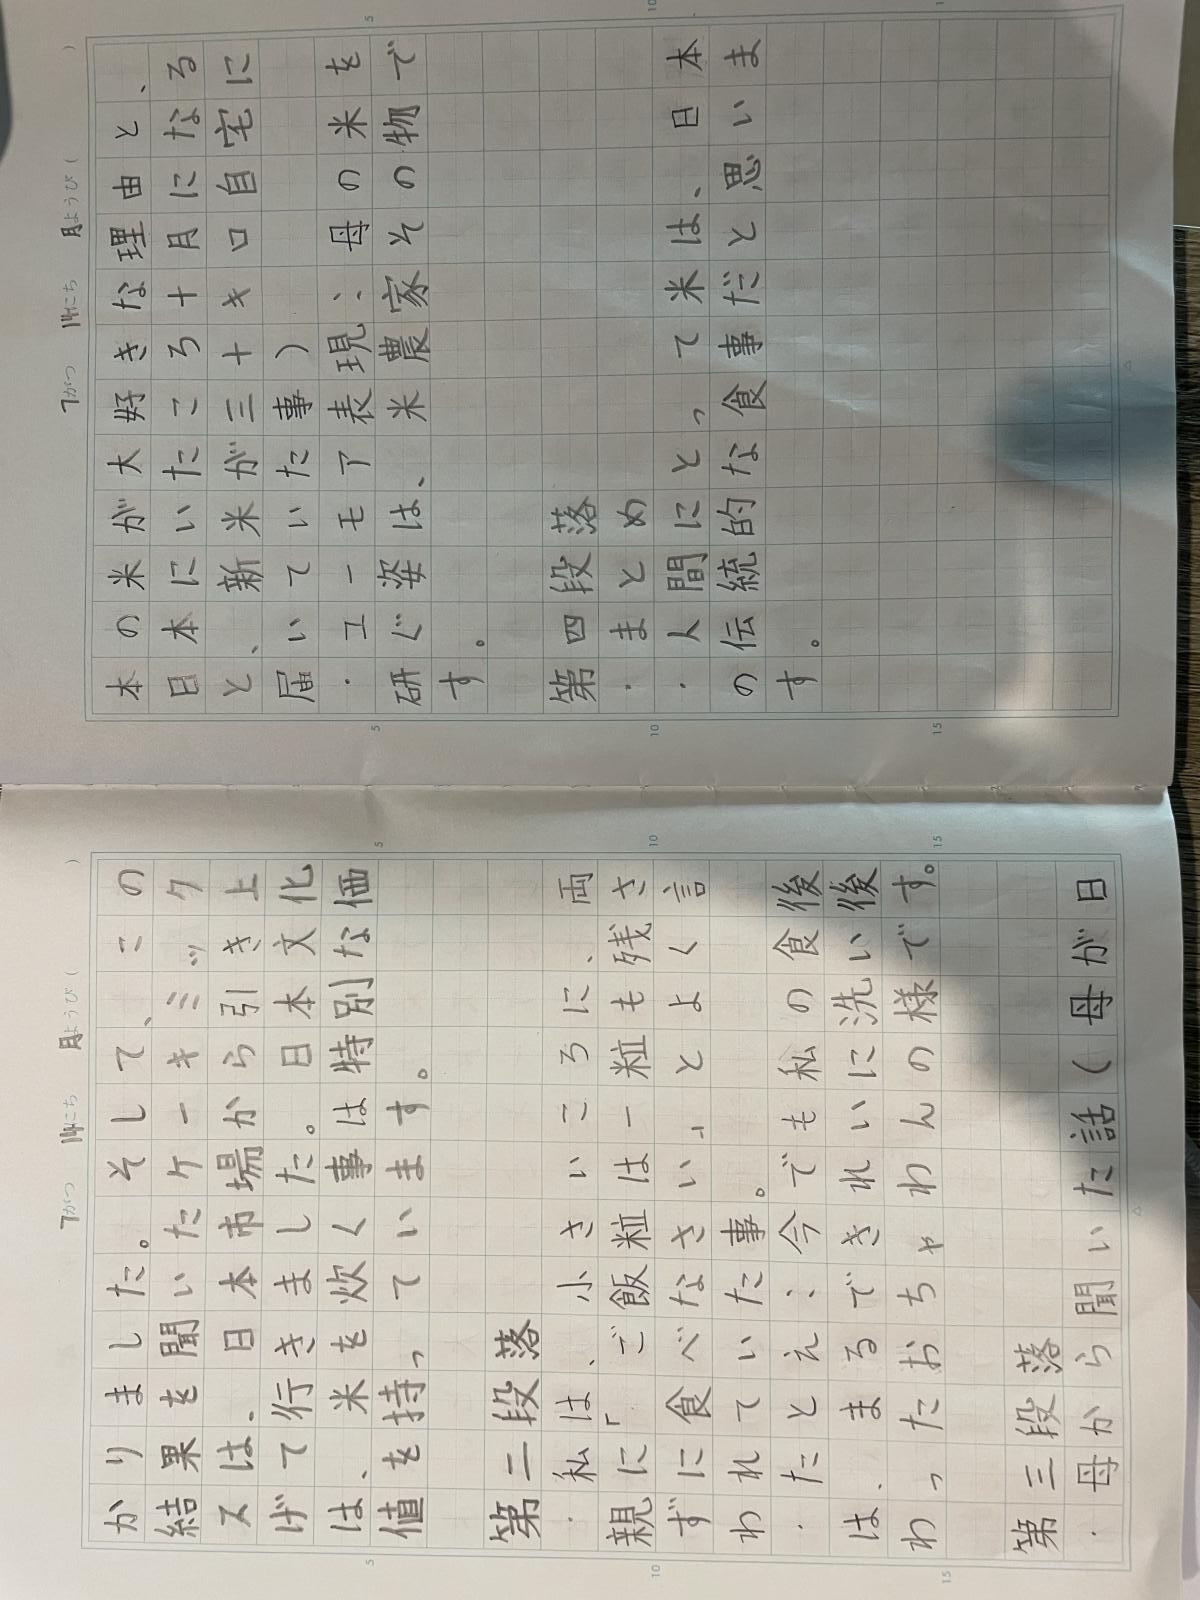 7がつ 14にち 月ようび( )
かりました。そして、この
結果を聞いたケーキミック
スは、日本市場から引き上
げて行きました。日本文化
は、米を炊く事は特別な価
値を持っています。
第二段落
・私は、小さいころに、両
親に「ご飯粒は一粒も残さ
ずに食べなさい」とよく言
われていた事。
・たとえ:今でも私の食後
は、まるできれいに洗い後
わったおちゃわんの様です。
第三段落
・母から聞いた話(母が日
7がつ 14にち 月ようび( )
本の米が大好きな理由と、
日本にいたころ十月になる
と、新米が三十キロ自宅に
届いていた事)
・ユーモア表現:母の米を
研ぐ姿は、米農家その物で
す。
第四段落
・まとめ
・人間にとって米は、日本
の伝統的な食事だと思いま
す。